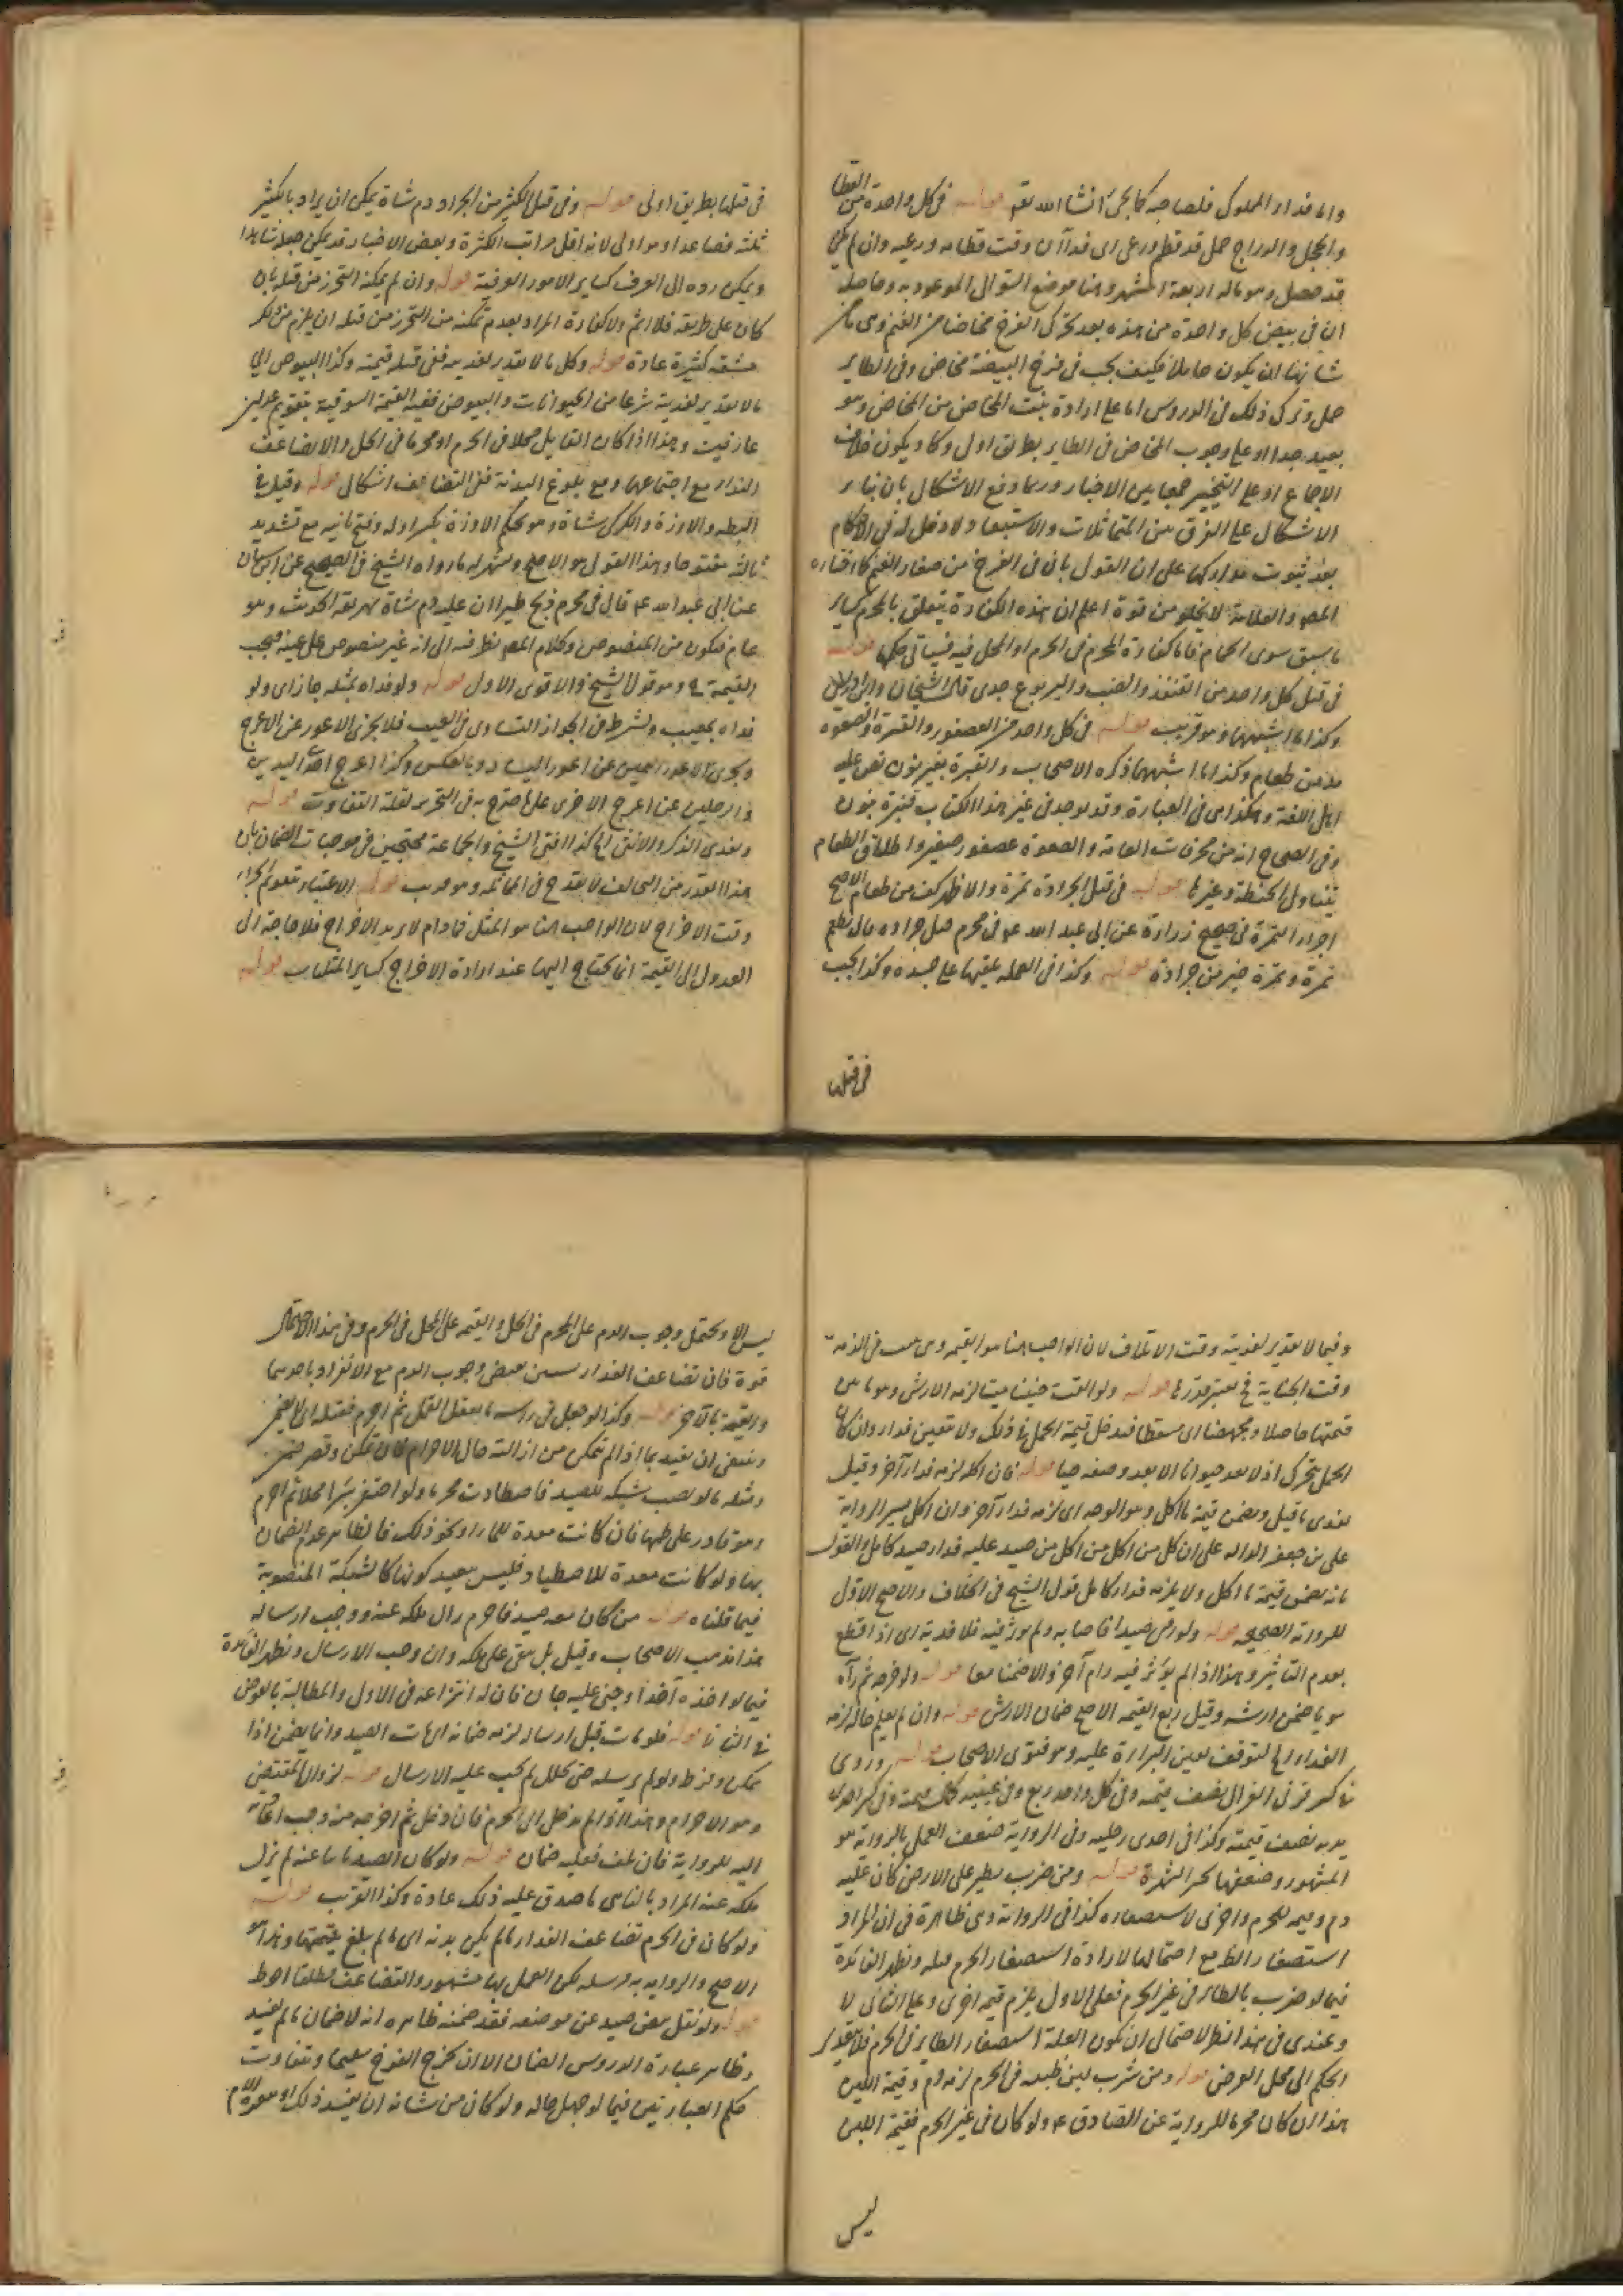 واما فداء المملوك فلصاحبه كما يجئ انشا الله تعم قوله في كل واحدة من القطا
والحجل والدراج حمل قد فطم ورعى اى قد آن وقت فطامه ورعيه وان لم يكن
قد حصل وهو ماله اربعة اشهر وهنا موضع السوال الموعود به وحاصله
ان في بيض كل واحدة من هذه بعد تحرك الفرخ مخاضا من الغنم وهى ما من
شانها ان يكون حاملا فكيف يجب في فرخ البيضة مخاض وفى الطاير
حمل وترك ذلك في الدروس اما على ارادة بنت المخاض من المخاض وهو
بعيد جدا او على وجوب المخاض في الطاير بطريق اولى وكاد يكون خلاف
الاجماع او على التخيير جمعا بين الاخبار وربما دفع الاشكال بان بناء
الاشكال على الفرق بين المتماثلات والاستبعاد ولا دخل له في الاحكام
بعد ثبوت مداركها على ان القول بان في الفرخ من صغار الغنم كما اختاره
المص والعلامة لا يخلو من قوة اعلم ان هذه الكفارة يتعلق بالمحرم كساير
ما سبق سوى الحمام فاما كفارة المحرم في الحرم او المحل فيه فسياتى حكمها قوله
في قتل كل واحد من القنفذ والضب واليربوع جدى قاله الشيخان وابن ادريس
وكذا ما اشبهها وهو قريب قوله في كل واحد من العصفور والقبرة والصعوة
مد من طعام وكذا ما اشبهها ذكره الاصحاب والقبرة بغير نون نص عليه
اهل اللغة وهكذا هى في العبارة وقد يوجد في غير هذا الكتاب قنبرة بنون
وفى الصحاح انه من محرفات العامة والصعوة عصفور صغير واطلاق الطعام
يتناول الحنطة وغيرها قوله في قتل الجرادة تمرة والاظهر كف من طعام الاصح
اجزاء التمرة في صحيح زرارة عن ابى عبد الله ع في محرم قتل جراده قال يطعم
تمرة وتمرة خير من جرادة قوله وكذا في القملة يلقيها على جسده وكذا يجب
في قتلها
في قتلها بطريق اولى قوله وفى قتل الكثير من الجراد دم شاة يمكن ان يراد بالكثير
ثلثة فصاعدا وهو اولى لانه اقل مراتب الكثرة وبعض الاخبار قد يمكن جعله شاهدا
ويمكن رده الى العرف كساير الامور العرفية قوله وان لم يمكنه التحرز من قتله بان
كان على طريقه فلا اثم ولا كفارة المراد بعدم تمكنه من التحرز من قتله ان يلزم من ذلك
مشقة كثيرة عادة قوله وكل ما لا تقدير لفديته ففى قتله قيمته وكذا البيوض اى
ما لا تقدير لفديته شرعا من الحيوانات والبيوض ففيه القيمة السوقية بتقويم عدلين
عارفين وهذا اذا كان القاتل محلا في الحرم او محرما في الحل والا تضاعف
الفداء مع اجتماعهما ومع بلوغ البدنة ففى التضاعف اشكال قوله وقيل في
البطة والاوزة والكركى شاة وهو تحكم الاوزة بكسر اوله وفتح ثانيه مع تشديد
ثالثه مفتوحا وهذا القول هو الاصح ويشهد له ما رواه الشيخ في الصحيح عن ابن سنان
عن ابى عبد الله ع قال في محرم ذبح طيرا ان عليه دم شاة يهريقه الحديث وهو
عام فيكون من المنصوص وكلام المص نظر فيه الى انه غير منصوص على عينه فيجب
القيمة وهو قول الشيخ والاقوى الاول قوله ولو فداه بمثله جاز اى ولو
فداه بمعيب ويشترط في الجواز التساوى في العيب فلا يجزى الاعور عن الاعرج
ويجزى الاعور اليمين عن اعور اليسار وبالعكس وكذا اعرج احدى اليدين
والرجلين عن اعرج الاخرى على ما صرح به في التحرير لقلة التفاوت قوله
ويفدى الذكر والانثى ايما كذا افتى الشيخ والجماعة محتجين في موجبات الضمان بان
هذا القدر من التخالف لا يقدح في المماثلة وهو قريب قوله الاعتبار بتقويم الجزاء
وقت الاخراج لان الواجب هنا هو المثل فما دام لا يريد الاخراج فلا حاجة الى
العدول الى القيمة انما يحتاج اليها عند ارادة الاخراج كساير المتلفات قوله
وفيما لا تقدير لفديته وقت الاتلاف لان الواجب هنا هو القيمة وهى تثبت في الذمة
وقت الجناية فيعتبر قدرها قوله ولو القت جنينا ميتا لزمه الارش وهو ما بين
قيمتها حاملا ومجهضا اى مسقطا فيدخل قيمة الحمل في ذلك ولا يتعين فداء وان كان
الحمل يتحرك اذ لا يعد حيوانا الا بعد وضعه حيا قوله فان اكله لزمه فداء آخر وقيل
يفدى ما قتل ويضمن قيمة ما اكل وهو الوجه اى لزمه فداء آخر وان اكل
على بن جعفر الدالة على ان كل من اكل من صيد عليه فداء صيد كامل والقول
بانه يضمن قيمة ما اكل ولا يلزمه فداء كامل قول الشيخ في الخلاف والاصح الاول
للرواية الصحيحة قوله ولو رمى صيدا فاصابه ولم يؤثر فيه فلا فدية اى اذا قطع
بعدم التاثير وهذا اذا لم يؤثر فيه رام آخر والا ضمنا معا قوله ولو جرحه ثم رآه
سويا ضمن ارشه وقيل ربع القيمة الاصح ضمان الارش قوله وان لم يعلم حاله لزمه
الفداء اى لتوقف يقين البراءة عليه وهو فتوى الاصحاب قوله وروى
في كسر قرنى الغزال نصف قيمته وفى كل واحد ربع وفى عينيه كمال قيمته وفى كسر احدى
يديه نصف قيمته وكذا في احدى رجليه وفى الرواية ضعف العمل بالرواية هو
المشهور وضعفها ينجبر بالشهرة قوله ومن ضرب بطير على الارض كان عليه
دم وقيمة للحرم واخرى لاستصغاره كذا في الرواية وهى ظاهرة في ان المراد
استصغار الطير مع احتمالها لارادة استصغار الحرم وتظهر الفائدة
فيما لو ضرب بالطائر في غير الحرم فعلى الاول يلزم قيمة اخرى وعلى الثانى لا
وعندى في هذا نظر لاحتمال ان يكون العلة استصغار الطاير في الحرم فلا يتعدى
الحكم الى محل الفرض قوله ومن شرب لبن ظبية في الحرم لزمه دم وقيمة اللبن
هذا ان كان محرما للرواية عن الصادق ع ولو كان في غير الحرم فقيمة اللبن
ليس
ليس الا ويحتمل وجوب الدم على المحرم في الحل والقيمة على المحل في الحرم وفى هذا الاحتمال
قوة فان تضاعف الفداء وجوب الدم مع الانفراد باحدهما
والقيمة بالآخر قوله وكذا لو جعل في راسه ما يقتل القمل ثم احرم فقتله
وينبغى ان يقيد بما اذا لم يتمكن من ازالته حال الاحرام فان تمكن وقصر ضمن
ومثله ما لو نصب شبكة للصيد فاصطادت محرما ولو احتفر بئرا محلا ثم احرم
وهو قادر على طمها فان كانت معدة للماء او نحو ذلك فالظاهر عدم الضمان
بها ولو كانت معدة للاصطياد فليس ببعيد كونها كالشبكة المنصوبة
فيما قلناه قوله من كان معه صيد فاحرم زال ملكه عنه ووجب ارساله
هذا مذهب الاصحاب وقيل بل يبقى على ملكه وان وجب الارسال وتظهر الفائدة
فيما لو اخذه آخذ او جنى عليه جان فان له انتزاعه في الاول والمطالبة بالعوض
في الثانى قوله فلو مات قبل ارساله لزمه ضمانه اى مات الصيد وانما يضمن اذا
تمكن وفرط ولو لم يرسله حتى تحلل لم يجب عليه الارسال قوله لزوال المقتضى
وهو الاحرام وهذا اذا لم يدخل الى الحرم فان دخل ثم اخرجه منه وجب اعادته
اليه للرواية فان تلف فعليه ضمان قوله ولو كان الصيد نائيا عنه لم يزل
ملكه عنه المراد بالنائى ما صدق عليه ذلك عادة وكذا القرب قوله
ولو كان في الحرم تضاعف الفداء ما لم يكن بدنة اى ما لم يبلغ قيمتها وهذا هو
الاصح والرواية به مرسلة لكن العمل بها مشهور والتضاعف مطلقا احوط
قوله ولو نقل بيض صيد عن موضعه فقد ضمنه ظاهره انه لا ضمان ما لم يفسد
وظاهر عبارة الدروس الضمان الا ان يخرج الفرخ سليما وتتفاوت
حكم العبارتين فيما لو جهل حاله ولو كان من شانه ان يفسد ذلك